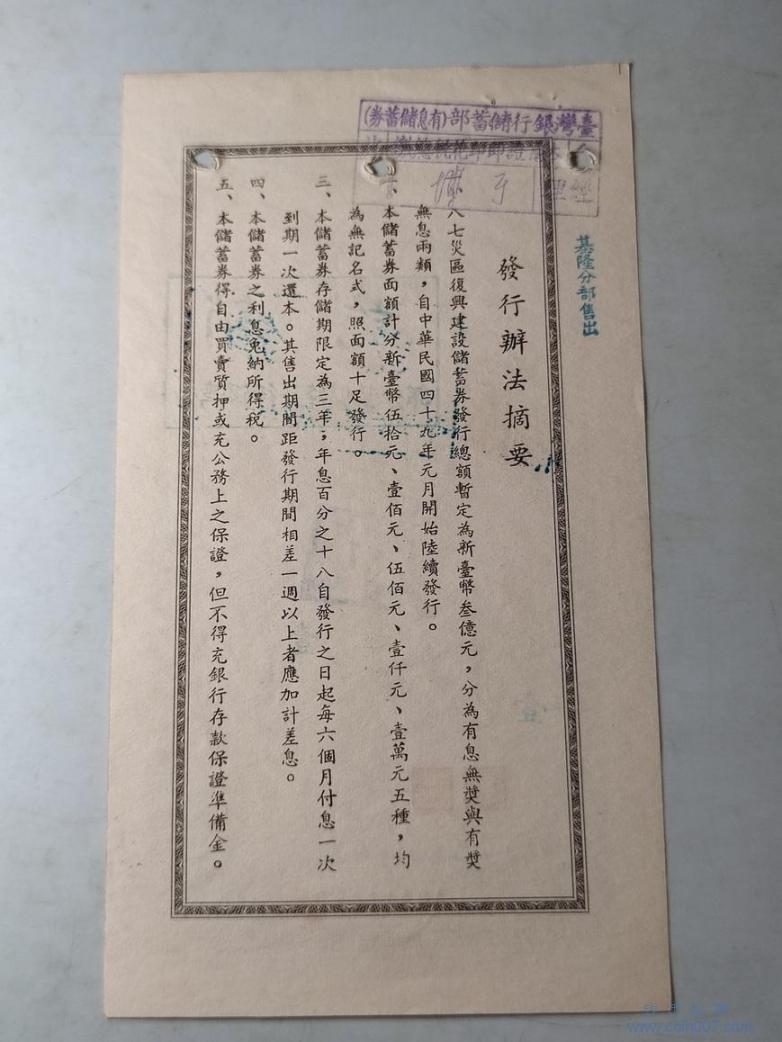 臺灣銀行儲蓄部(有息儲蓄券)
基隆分部售出
發行辦法摘要
八七災區復興建設儲蓄券發行總額暫定為新臺幣叁億元，分為有息無獎與有獎
無息兩類，自中華民國四十九年元月開始陸續發行。
本儲蓄券面額計分新臺幣伍拾元、壹佰元、伍佰元、壹仟元、壹萬元五種，均
為無記名式，照面額十足發行。
三、本儲蓄券存儲期限定為三年；年息百分之十八自發行之日起每六個月付息一次
到期一次還本。其售出期間距發行期間相差一週以上者應加計差息。
四、本儲蓄券之利息免納所得稅。
五、本儲蓄券得自由買賣質押或充公務上之保證，但不得充銀行存款保證準備金。
www.coin007.com